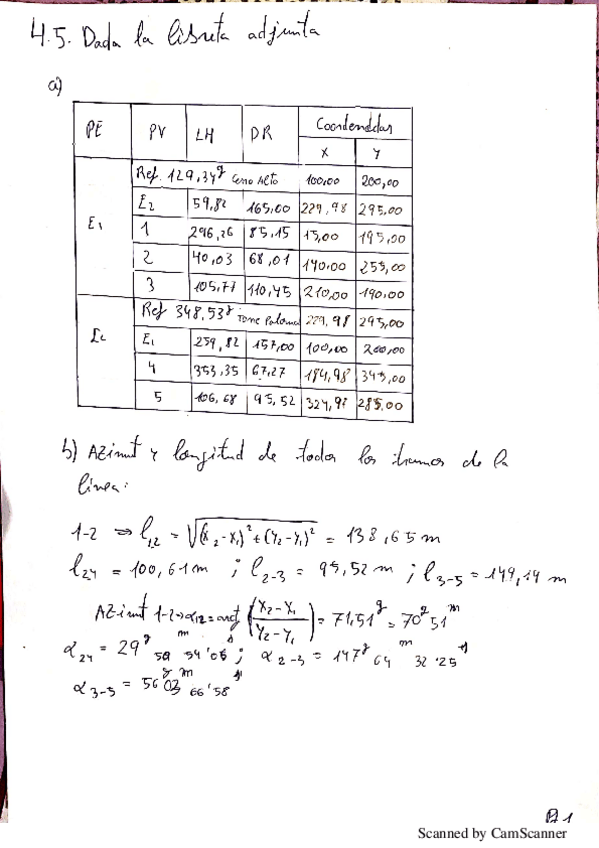 4.5. Dada la libreta adjunta
a)
PE PV LH DR Coordenadas
X Y
E1 Ref. 129,34g Cerro Alto 100,00 200,00
E2 59,82 165,00 229,98 295,00
1 296,26 85,15 15,00 195,00
2 40,03 68,01 140,00 255,00
3 105,77 110,45 210,00 190,00
E2 Ref 348,53g Torre Paloma 229,98 295,00
E1 259,82 157,00 100,00 200,00
4 353,35 67,27 184,98 345,00
5 106,68 95,52 324,98 285,00
b) Azimut y longitud de todos los tramos de la
línea:
1-2 ⇒ l12 = √(x2-x1)²+(y2-y1)² = 138,65 m
l24 = 100,61 m ; l2-3 = 95,52 m ; l3-5 = 149,14 m
Azimut 1-2 ⇒ α12 = arctg (x2-x1/y2-y1) = 71,51g = 70g 51m
α24 = 29g 50m 54'06s ; α2-3 = 147g 64m 32'25s
α3-5 = 56g 03m 66'58s
Scanned by CamScanner